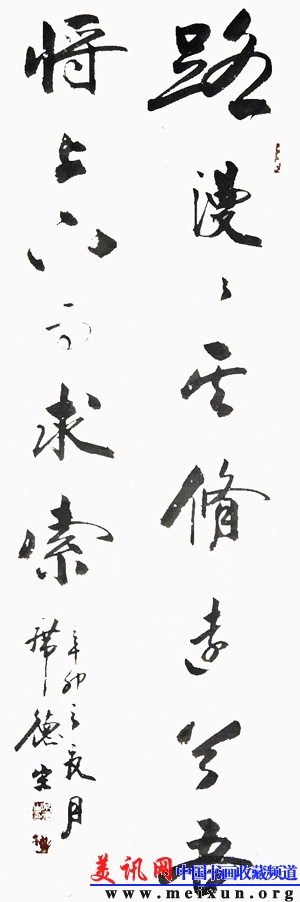 路漫々其脩远兮吾
将上下而求索
辛卯之月
德
美讯网 中国书画收藏频道
www.meixun.org